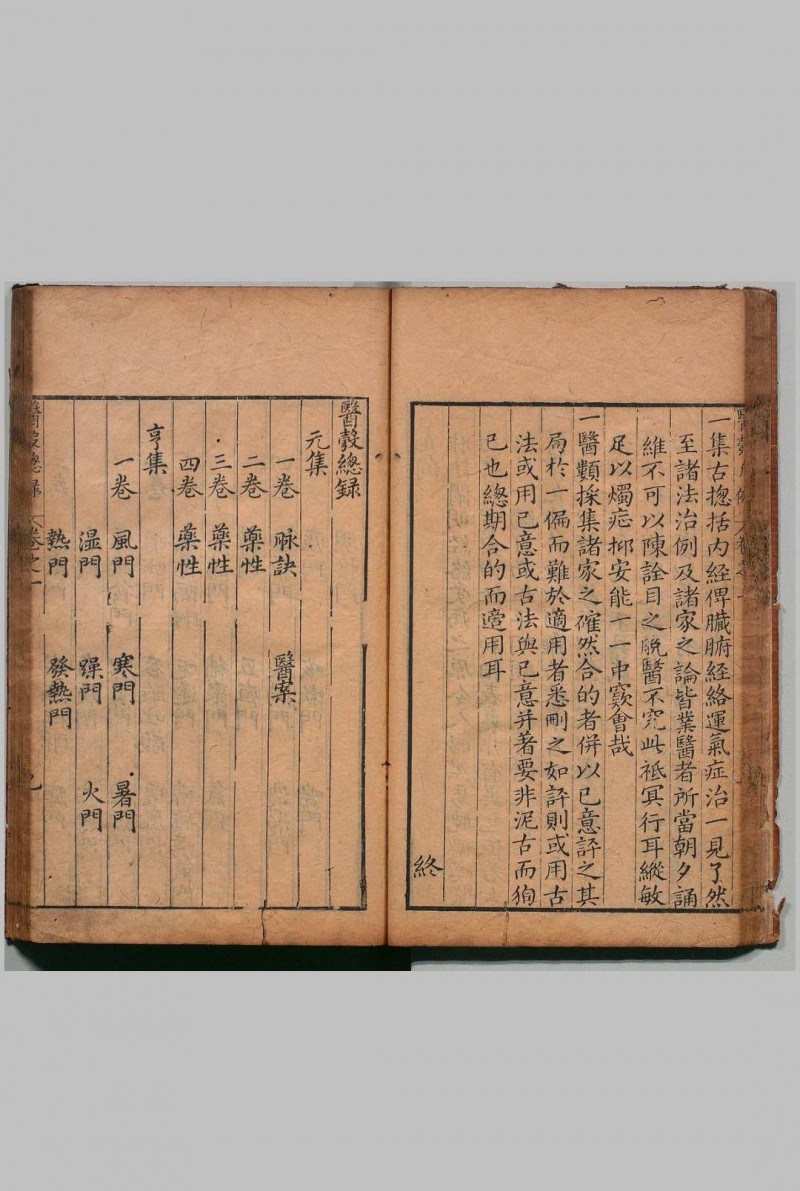 一集古捴括内经俾臟腑经絡運氣症治一見了然
至諸法治例及諸家之論皆業醫者所當朝夕誦
維不可以陳詮目之脱醫不究此祗冥行耳縱敏
足以燭疟抑安能一一中窽會哉
一醫類採集諸家之確然合的者併以已意評之其
局於一偏而難於適用者悉刪之如評則或用古
法或用已意或古法與已意并著要非泥古而狥
已也總期合的而適用耳
終
醫彀總録
元集
一卷 脉訣 醫案
二卷 藥性
三卷 藥性
四卷 藥性
亨集
一卷 風門 寒門 暑門
湿門 燥門 火門
熱門 發熱門
醫彀總録 卷之一